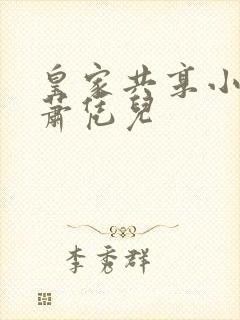 皇家共享小
蕭恁兒
李秀群